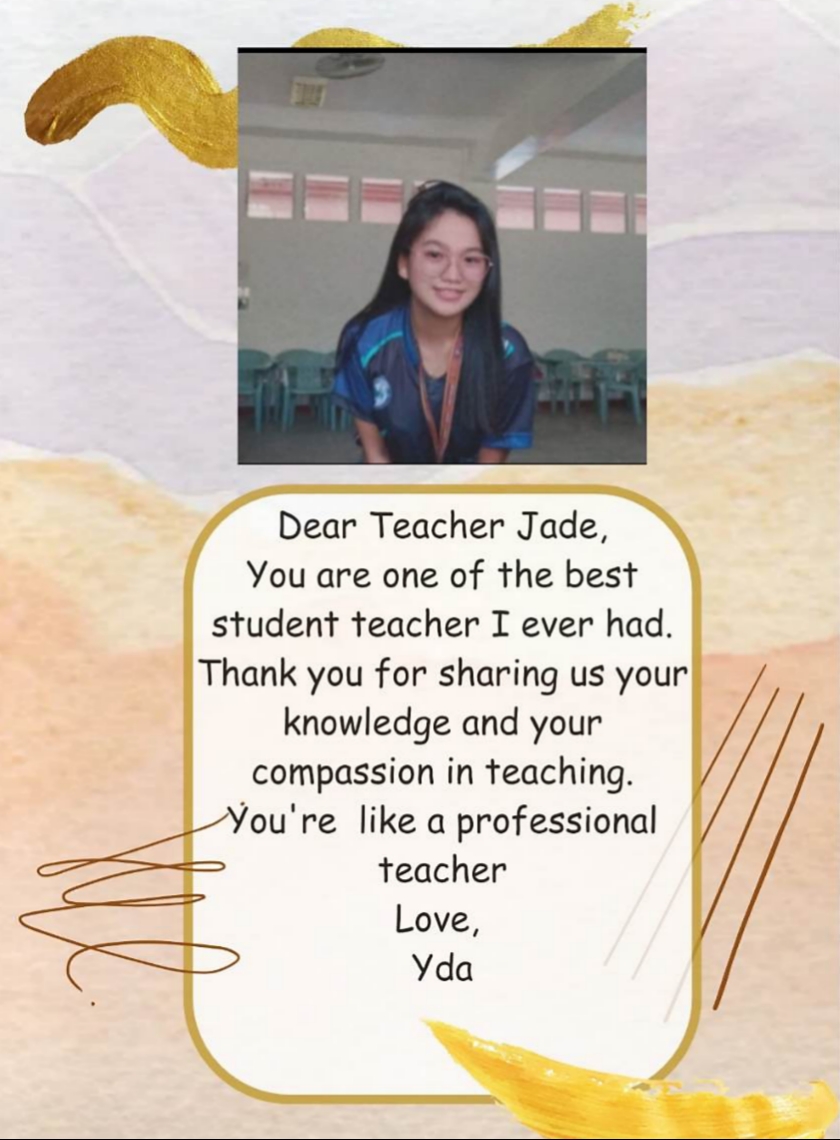 Dear Teacher Jade,
You are one of the best
student teacher I ever had.
Thank you for sharing us your
knowledge and your
compassion in teaching.
You're  like a professional
teacher
Love,
Yda